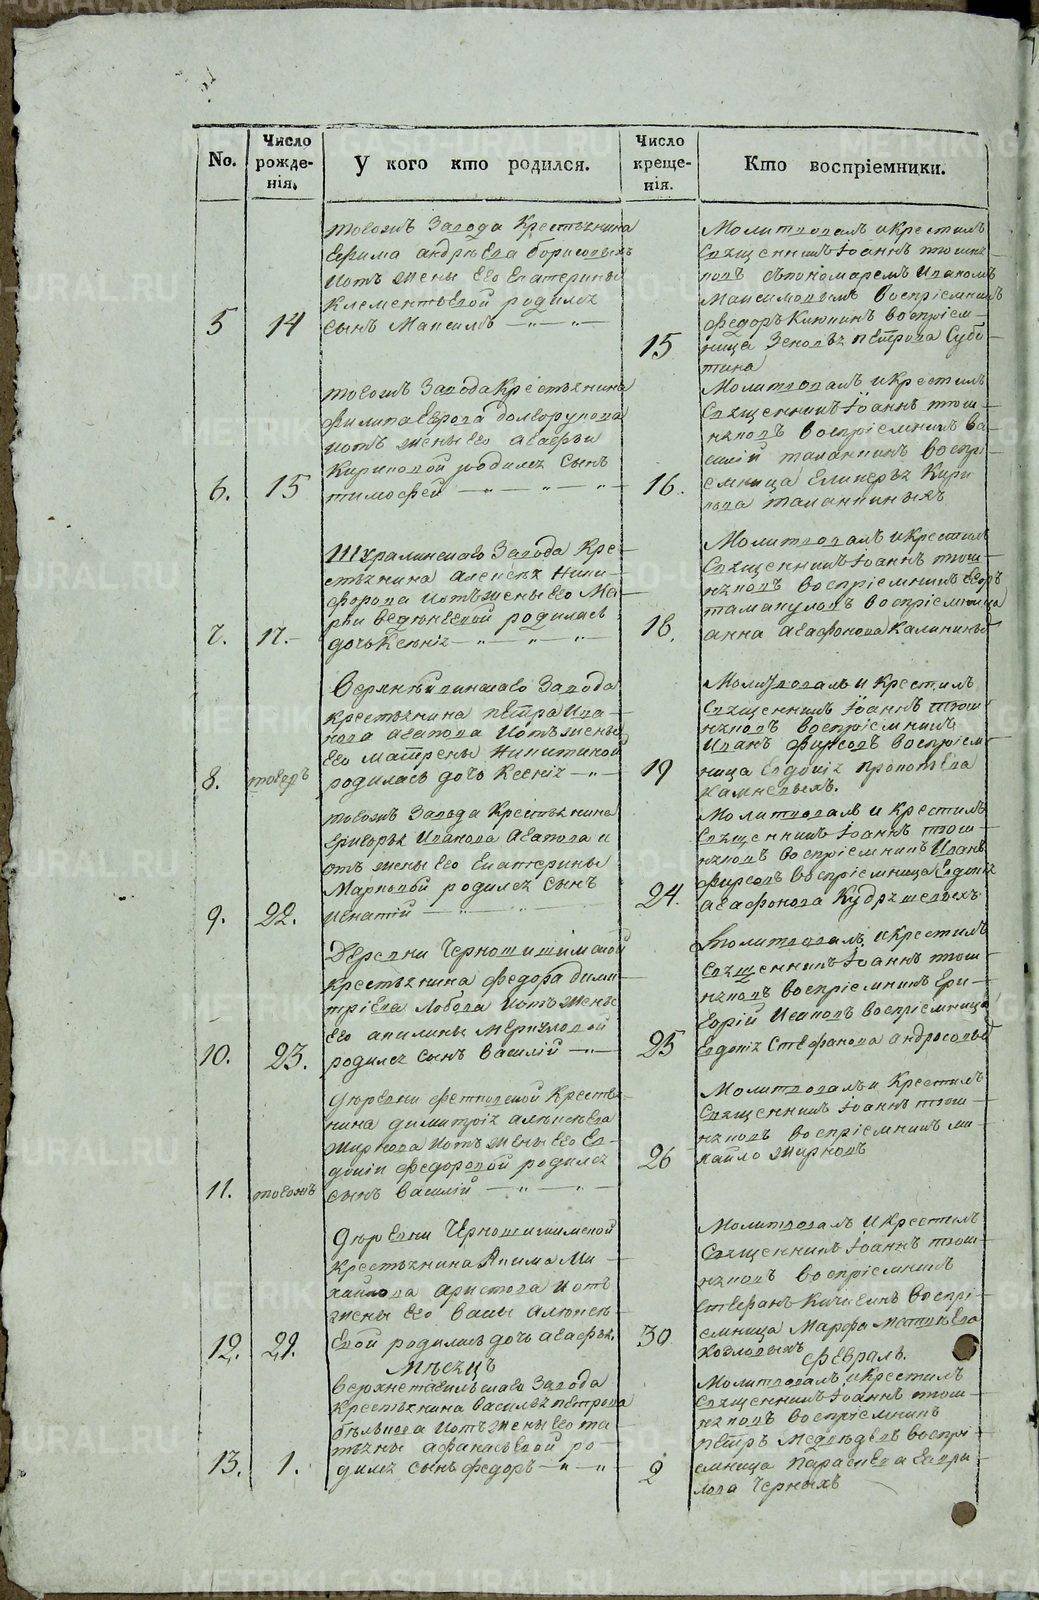 No.
Число рожде-нія.
У кого кто родился.
Число креще-нія.
Кто воспріемники.
5
14
тогожъ Завода Крестьянина
Ефима андрѣева борисовыхъ
и отъ жены его Екатерины
Клементьевой родился
сынъ Максимъ
15
Молитвовалъ и крестилъ
Священникъ Іоаннъ тош
новъ съ пономаремъ Иваномъ
Максимовымъ воспріемникъ
федоръ Клюкинъ воспріем-
ница Зеновья петрова Субо-
тина
6.
15
тогожъ Завода Крестьянина
филипа Егорова долгорукова
и отъ жены его агафьи
Кириловой родился сынъ
тимофей
16.
Молитвовалъ и крестилъ
Священникъ Іоаннъ тош-
няковъ воспріемникъ Ва-
силій таланкинъ воспрі-
емница Кири
лова таланкиныхъ
7.
17.
Шуралинскаго Завода Кре-
стьянина алексѣя Ники-
форова и отъ жены его Ма-
рьи родилась
дочь Ксенія
18.
Молитвовалъ и крестилъ
Священникъ Іоаннъ тош-
няковъ воспріемникъ Егоръ
воспріемница
анна агафонова Калининыхъ
8.
тогожъ
Завода
крестьянина петра Ива-
нова агапова и отъ жены
его матрены Никитиной
родилась дочь Ксенія
19
Молитвовалъ и крестилъ
Священникъ Іоаннъ тош-
няковъ воспріемникъ
Иванъ фирсовъ воспріем-
ница Евдокія прокопьева
9.
22.
тогожъ Завода Крестьянина
григорья Иванова агапова и
отъ жены его Екатерины
Марковой родился сынъ
игнатій
24.
Молитвовалъ и крестилъ
Священникъ Іоаннъ тош-
няковъ воспріемникъ Иванъ
фирсовъ воспріемница Евдокія
агафонова Кудряшевыхъ
10.
23.
Деревни Черношишимской
крестьянина федора дими-
тріева Лобова и отъ жены
его акилины меркуловой
родился сынъ василій
25
Молитвовалъ и крестилъ
Священникъ Іоаннъ тош-
няковъ воспріемникъ гри-
горій Исаковъ воспріемница
Евдокія Стефанова андросовыхъ
11.
тогожъ
дѣревни фетковской Кресть-
янина димитрія алексѣева
жиркова и отъ жены его Ев-
докіи федоровой родился
сынъ василій
26
Молитвовалъ и крестилъ
Священникъ Іоаннъ тош-
няковъ воспріемникъ ми-
хайло жирковъ
12.
29.
дѣревни Черношишимской
крестьянина Акима Ми-
хайлова аристова и отъ
жены его алексѣ-
евой родилась дочь агафья.
30
Молитвовалъ и крестилъ
Священникъ Іоаннъ тош-
няковъ воспріемникъ
стефанъ воспрі-
емница Марфа матвѣева
Козловыхъ
Мѣсяцъ
февраль.
13.
1.
верхнетагильскаго Завода
крестьянина василья петрова
бѣлькова и отъ жены его та-
тьяны афанасьевой ро-
дился сынъ федоръ
2
Молитвовалъ и крестилъ
Священникъ Іоаннъ тош-
няковъ воспріемникъ
петръ медвѣдевъ воспрі-
емница параскева гаври-
лова Черныхъ
METRIKI.GASO-URAL.RU